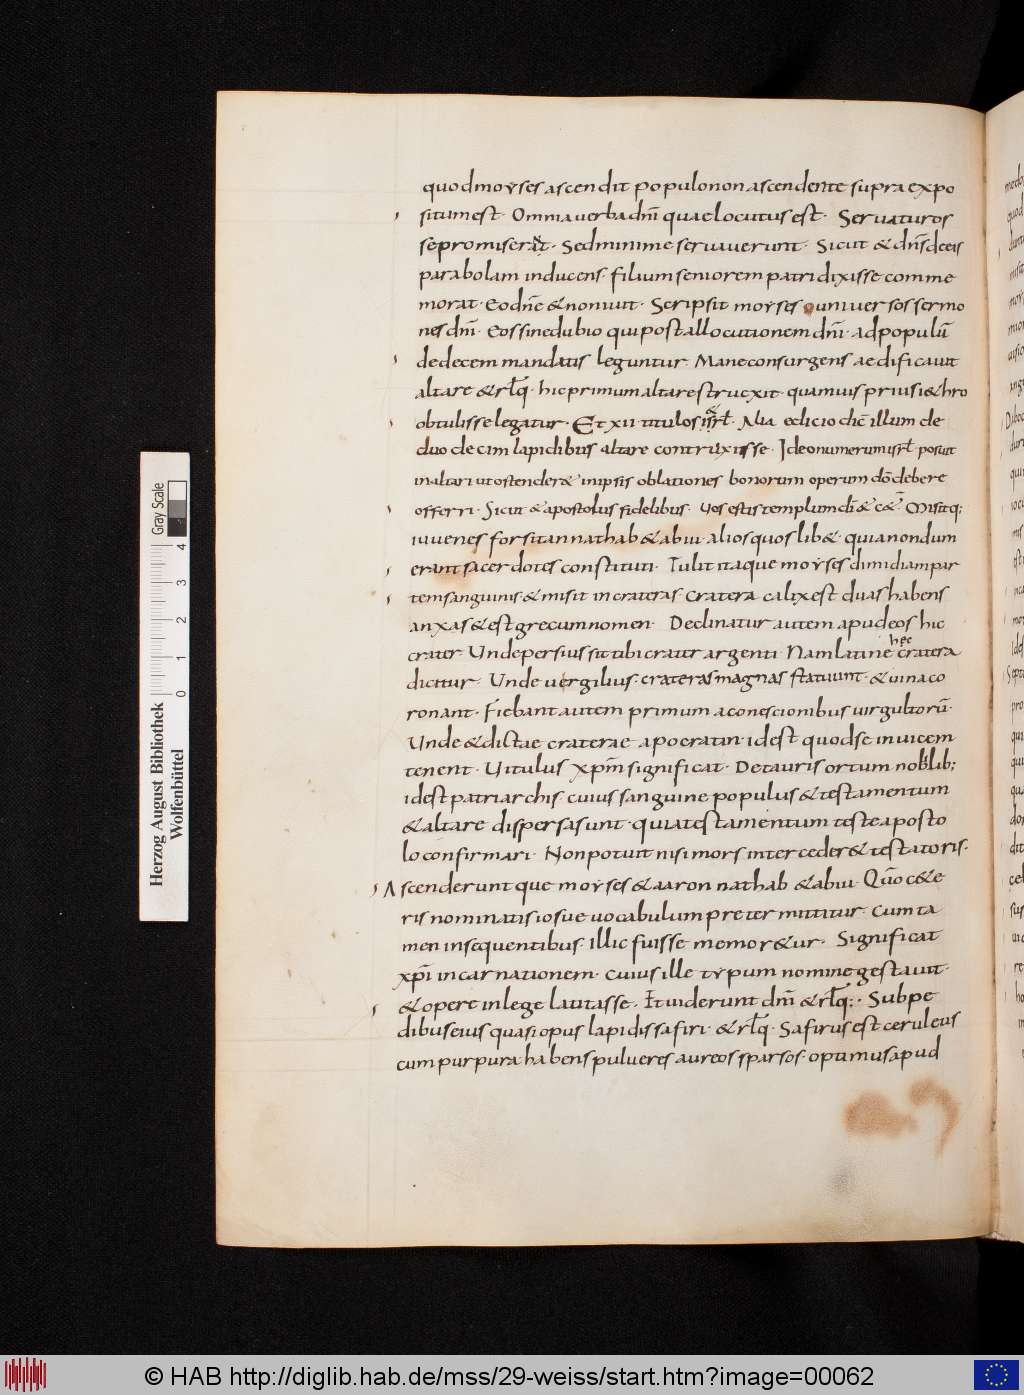 quod moyses ascendit populo non ascendente supra expo
situm est· Omnia uerba dnī quae locutus est· Seruaturos
se promiserāt· Sed minime seruauerunt· Sicut & dn̄s de eis
parabolam inducens· filium seniorem patri dixisse comme
morat· Eo dn̄e & non iuit· Scripsit moyses uniuersos sermo
nes dnī· Eos sine dubio qui post allocutionem dnī· ad populū
de decem mandatis leguntur· Mane consurgens aedificauit
altare & rłq· hic primum altare struexit· quamuis prius i&hro
obtulisse legatur· Et XII titulos isrł· Alia edicio dic̄ illum de
duodecim lapidibus altare contruxisse· Ideo numerum isrł posuit
in altari ut ostender& in ipsis oblationes bonorum operum dō debere
offerri· Sicut & apostolus fidelibus· Uos estis templum dī & c&·̄ Misitq;
iuuenes forsitan nathab & abiu· alios quoslib& quia nondum
erant sacerdotes constituti· Tulit itaque moyses dimidiam par
tem sanguinis· & misit in crateras· Cratera calix est duas habens
anxas & est grecum nomen· Declinatur autem apud eos hic
crater Unde persius sit tibi crater argenti· Nam latine hec cratera
dicitur· Unde uergilius· crateras magnas statuunt· & uina co
ronant· Fiebant autem primum a conexcionibus uirgultorū·
Unde & dictae craterae apo cratin· id est quod se inuicem
tenent· Uitulus xpm̄ significat· De tauris ortum nobilib;
id est patriarchis· cuius sanguine populus & testamentum
& altare dispersa sunt· quia testamentum teste aposto
lo confirmari· Non potuit nisi mors interceder& testatoris·
Ascenderunt que moyses & aaron nathab & abiu· Quō c&e
ris nominatis iosue uocabulum pretermittitur· cum ta
men in sequentibus· Illic fuisse memor&ur· Significat
xpī incarnationem· cuius ille typum nomine gestauit·
& opere in lege latitasse· Et uiderunt dnm̄ & rłq:· Sub pe
dibus eius quasi opus lapidis safiri· & rłq· Safirus est ceruleus
cum purpura habens pulueres aureos sparsos· optimus apud
Herzog August Bibliothek
Wolfenbüttel
0 1 2 3 4
Gray Scale
© HAB http://diglib.hab.de/mss/29-weiss/start.htm?image=00062